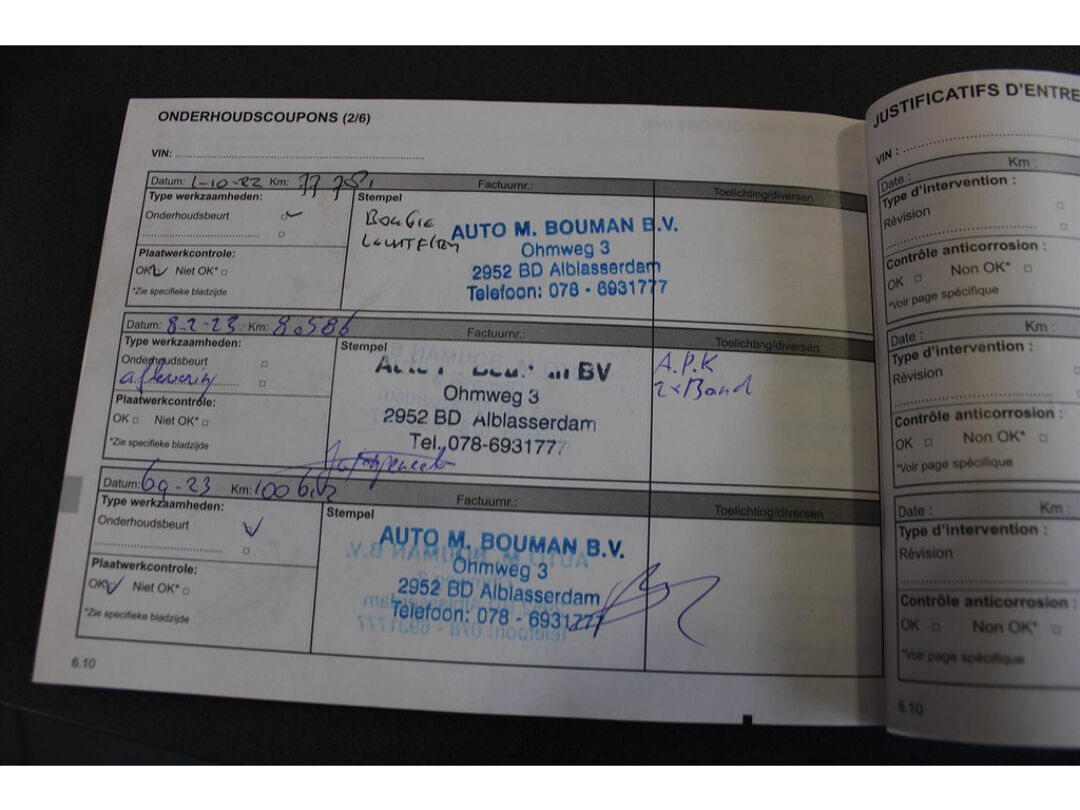 ONDERHOUDSCOUPONS (2/6)
VIN:
Datum: 1-10-22 Km: Factuurnr.: Toelichting/diversen
Type werkzaamheden:
Onderhoudsbeurt
Plaatwerkcontrole:
OK Niet OK*
*Zie specifieke bladzijde
Stempel
BouGie
LuchtFilter
AUTO M. BOUMAN B.V.
Ohmweg 3
2952 BD Alblasserdam
Telefoon: 078 - 6931777
Datum: 8-2-23 Km: 8.586 Factuurnr.: Toelichting/diversen
Type werkzaamheden:
Onderhoudsbeurt
aflevering
Plaatwerkcontrole:
OK Niet OK*
*Zie specifieke bladzijde
Stempel
BV
Ohmweg 3
2952 BD Alblasserdam
Tel. 078-6931777
A.P.K
2xBand
Datum: 6-9-23 Km: Factuurnr.: Toelichting/diversen
Type werkzaamheden:
Onderhoudsbeurt
Plaatwerkcontrole:
OK Niet OK*
*Zie specifieke bladzijde
Stempel
AUTO M. BOUMAN B.V.
Ohmweg 3
2952 BD Alblasserdam
Telefoon: 078 - 6931777
6.10
JUSTIFICATIFS D'ENTRE
VIN :
Date : Km :
Type d'intervention :
Révision
Contrôle anticorrosion :
OK Non OK*
*Voir page spécifique
Date : Km :
Type d'intervention :
Révision
Contrôle anticorrosion :
OK Non OK*
*Voir page spécifique
Date : Km :
Type d'intervention :
Révision
Contrôle anticorrosion :
OK Non OK*
*Voir page spécifique
6.10